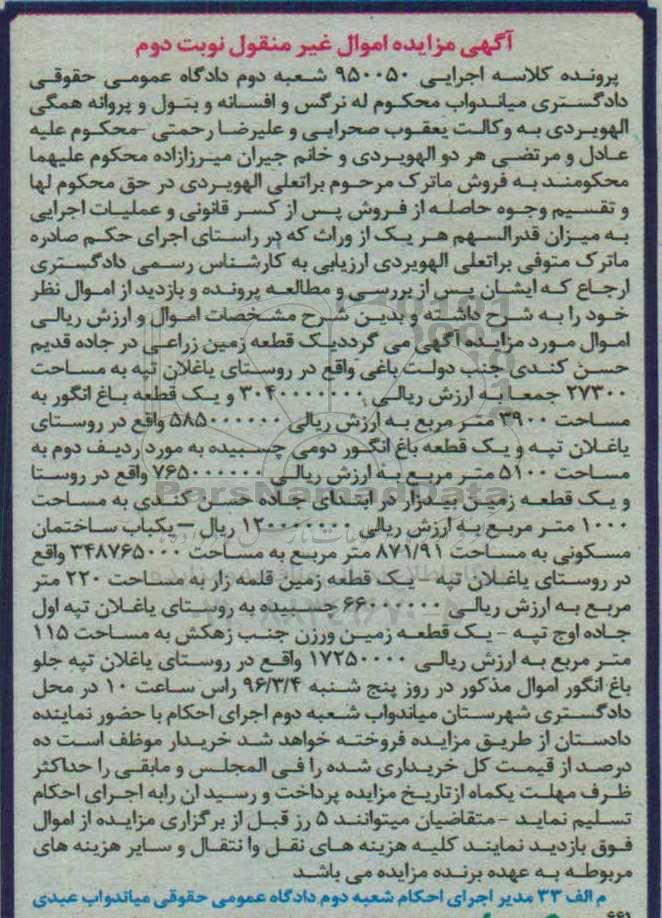 آگهی مزایده اموال غیر منقول نوبت دوم
پرونده کلاسه اجرایی ۹۵۰۰۵۰ شعبه دوم دادگاه عمومی حقوقی
دادگستری میاندواب محکوم له نرگس و افسانه و بتول و پروانه همگی
الهویردی به وکالت یعقوب صحرایی و علیرضا رحمتی -محکوم علیه
عادل و مرتضی هر دو الهویردی و خانم جیران میرزازاده محکوم علیهما
محکومند به فروش ماترک مرحوم براتعلی الهویردی در حق محکوم لها
و تقسیم وجوه حاصله از فروش پس از کسر قانونی و عملیات اجرایی
به میزان قدرالسهم هر یک از وراث که در راستای اجرای حکم صادره
ماترک متوفی براتعلی الهویردی ارزیابی به کارشناس رسمی دادگستری
ارجاع که ایشان پس از بررسی و مطالعه پرونده و بازدید از اموال نظر
خود را به شرح داشته و بدین شرح مشخصات اموال و ارزش ریالی
اموال مورد مزایده آگهی می گرددیک قطعه زمین زراعی در جاده قدیم
حسن کندی جنب دولت باغی واقع در روستای یاغلان تپه به مساحت
۲۷۳۰۰ جمعا به ارزش ریالی ۳۰۴۰۰۰۰۰۰۰ و یک قطعه باغ انگور به
مساحت ۳۹۰۰ متر مربع به ارزش ریالی ۵۸۵۰۰۰۰۰۰ واقع در روستای
یاغلان تپه و یک قطعه باغ انگور دومی چسبیده به مورد ردیف دوم به
مساحت ۵۱۰۰ متر مربع به ارزش ریالی ۷۶۵۰۰۰۰۰۰ واقع در روستا
و یک قطعه زمین بیدزار در ابتدای جاده حسن کندی به مساحت
۱۰۰۰ متر مربع به ارزش ریالی ۱۲۰۰۰۰۰۰۰ ریال – یکباب ساختمان
مسکونی به مساحت ۸۷۱/۹۱ متر مربع به مساحت ۳۴۸۷۶۵۰۰۰ واقع
در روستای یاغلان تپه - یک قطعه زمین قلمه زار به مساحت ۲۲۰ متر
مربع به ارزش ریالی ۶۶۰۰۰۰۰۰ چسبیده به روستای یاغلان تپه اول
جاده اوج تپه - یک قطعه زمین ورزن جنب زهکش به مساحت ۱۱۵
متر مربع به ارزش ریالی ۱۷۲۵۰۰۰۰ واقع در روستای یاغلان تپه جلو
باغ انگور اموال مذکور در روز پنج شنبه ۹۶/۳/۴ راس ساعت ۱۰ در محل
دادگستری شهرستان میاندواب شعبه دوم اجرای احکام با حضور نماینده
دادستان از طریق مزایده فروخته خواهد شد خریدار موظف است ده
درصد از قیمت کل خریداری شده را فی المجلس و مابقی را حداکثر
ظرف مهلت یکماه ازتاریخ مزایده پرداخت و رسید ان رابه اجرای احکام
تسلیم نماید -متقاضیان میتوانند ۵ رز قبل از برگزاری مزایده از اموال
فوق بازدید نمایند کلیه هزینه های نقل وا نتقال و سایر هزینه های
مربوطه به عهده برنده مزایده می باشد
م الف ۳۳ مدیر اجرای احکام شعبه دوم دادگاه عمومی حقوقی میاندواب عبدی
ParsNamadData